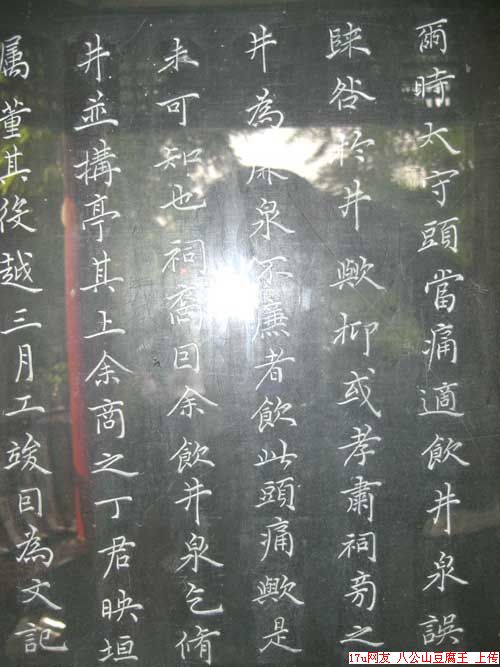 爾時太守頭當痛適飲井泉誤
歸咎於井歟抑或孝肅祠旁之
井為廉泉不廉者飲此頭痛歟是
未可知也祠裔因余飲井泉乞脩
井並搆亭其上余商之丁君映垣
属董其役越三月工竣因為文記
17u网友 八公山豆腐王 上传